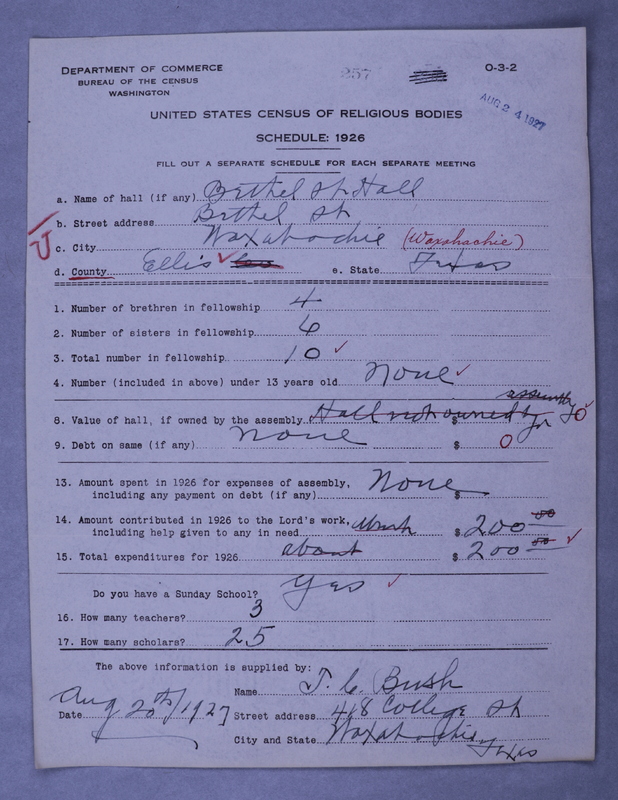 DEPARTMENT OF COMMERCE
BUREAU OF THE CENSUS
WASHINGTON
257
O-3-2
AUG 24 1927
UNITED STATES CENSUS OF RELIGIOUS BODIES
SCHEDULE: 1926
FILL OUT A SEPARATE SCHEDULE FOR EACH SEPARATE MEETING
a. Name of hall (if any) Bethel St. Hall
b. Street address Bethel St
c. City Waxahachie (Waxahachie)
d. County Ellis e. State Texas
1. Number of brethren in fellowship 4
2. Number of sisters in fellowship 6
3. Total number in fellowship 10
4. Number (included in above) under 13 years old None
8. Value of hall, if owned by the assembly Hall not owned by assembly $ 0
9. Debt on same (if any) none $ 0
13. Amount spent in 1926 for expenses of assembly,
including any payment on debt (if any) None $
14. Amount contributed in 1926 to the Lord's work,
including help given to any in need $ 200 00
15. Total expenditures for 1926 about $ 200 00
Do you have a Sunday School? Yes
16. How many teachers? 3
17. How many scholars? 25
The above information is supplied by:
Name J. C. Bush
Date Aug 20th/1927 Street address 418 College St
City and State Waxahachie Texas